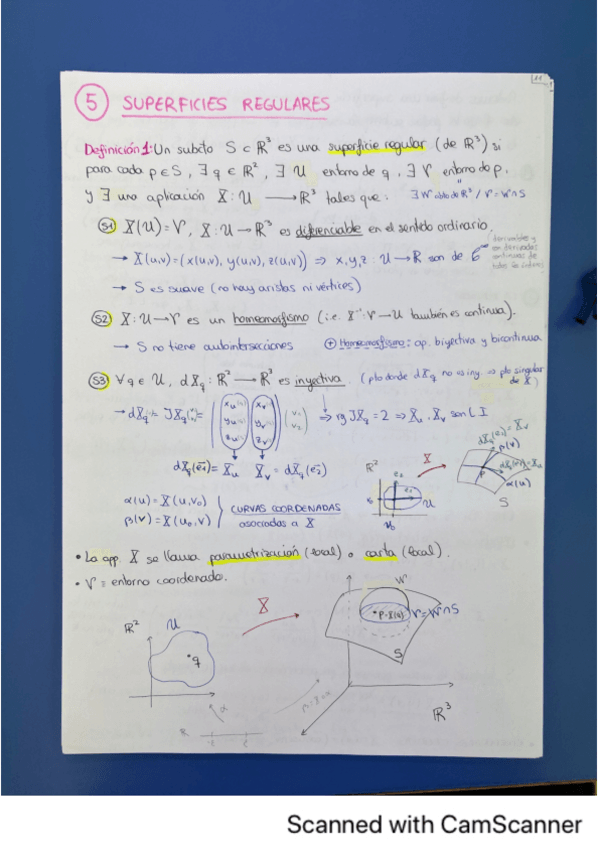 11
5 SUPERFICIES REGULARES
Definición 1: Un subcto S ⊂ ℝ³ es una superficie regular (de ℝ³) si
para cada p∈S, ∃ q ∈ ℝ², ∃ U entorno de q, ∃ V entorno de p,
y ∃ una aplicación X: U → ℝ³ tales que: ∃ W abto de ℝ³ / V = W∩S
S1 X(U)=V, X: U → ℝ³ es diferenciable en el sentido ordinario.
→ X(u,v)=(x(u,v), y(u,v), z(u,v)) ⇒ x,y,z: U → ℝ son de C^∞
derivables y
continuas de
→ S es suave (no hay aristas ni vértices)
S2 X: U → V es un homeomorfismo (i.e. X⁻¹: V → U también es continua).
→ S no tiene autointersecciones ⊕ Homeomorfismo: ap. biyectiva y bicontinua
S3 ∀q ∈ U, dX_q: ℝ² → ℝ³ es inyectiva (pto donde dX_q no es iny → pto singular
de X)
→ dX_q = JX_q = ( x_u x_v y_u y_v z_u z_v ) ( v₁ v₂ ) ⇒ rg JX_q = 2 ⇒ X_u, X_v son L I
dX_q(e₁) = X_u X_v = dX_q(e₂)
α(u) = X(u,v₀)
β(v) = X(u₀,v)
CURVAS COORDENADAS
asociadas a X
ℝ² e₂ e₁ U u₀ X
dX_q(e₂) = X_v
β(v)
dX_q(e₁)=X_u
α(u)
S
• La app. X se llama parametrización (local) o carta (local).
• V = entorno coordenado.
ℝ² U •q
X
W
•p=X(q) V=W∩S
S
ℝ³
α
Scanned with CamScanner